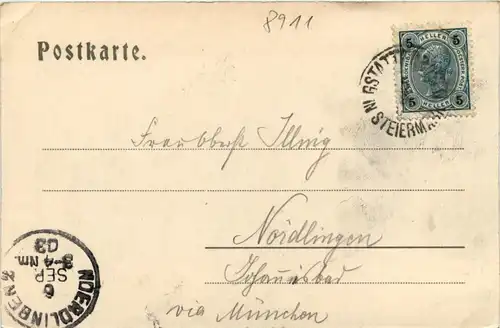 8911
Postkarte.
5 HELLER 5
5 HELLER 5
STEIERMARK
Frau Oberst Illnig
Nördlingen
Johannisbad
via München
NOERDLINGEN 2
6
SEP
3-4 Nm.
03